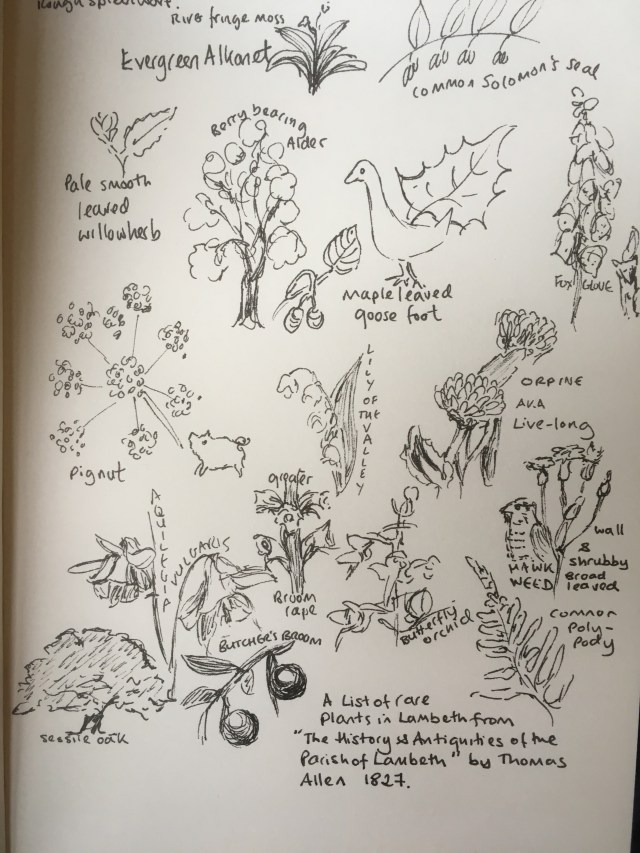 Rough spleenwort.
River fringe moss
Evergreen Alkanet
Common Solomon's Seal
Pale smooth
leaved
willowherb
Berry bearing
Alder
Maple leaved
goose foot
Fox Glove
Pignut
LILY OF THE VALLEY
ORPINE
A.K.A
Live-long
AQUILEGIA VULGARIS
greater
Broom
rape
Butterfly
orchid
HAWK
WEED
wall
&
shrubby
Broad
leaved
common
Poly-
Pody
BUTCHER'S BROOM
sessile oak
A List of rare
Plants in Lambeth from
"The History & Antiquities of the
Parish of Lambeth" by Thomas
Allen 1827.